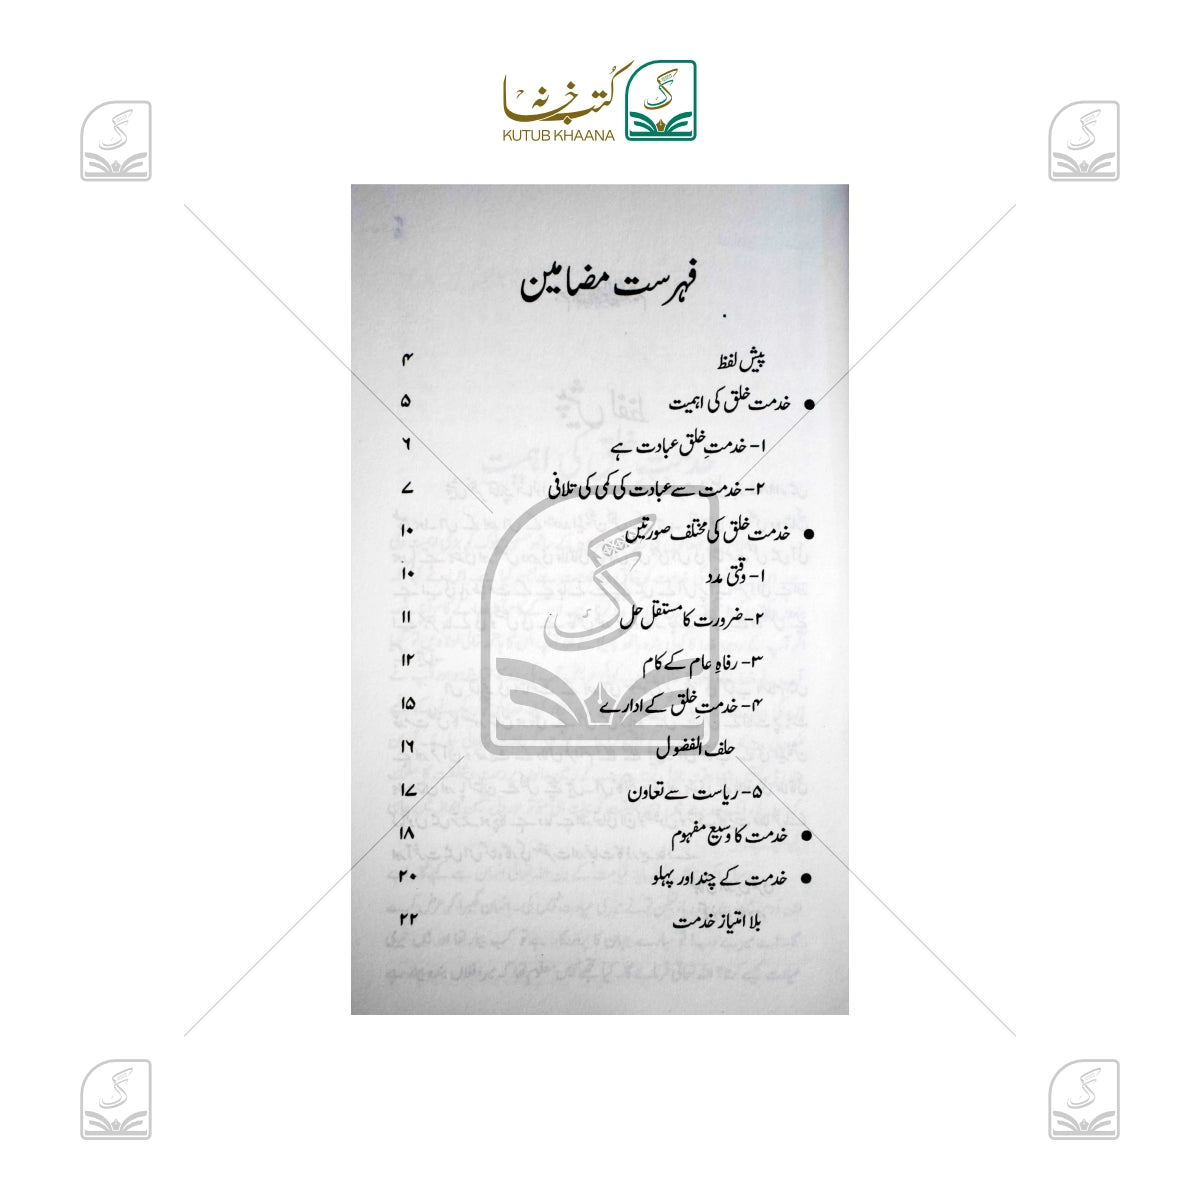 کُتب خانہ
KUTUB KHAANA
فہرست مضامین
پیش لفظ ۴
● خدمت خلق کی اہمیت ۵
۱- خدمتِ خلق عبادت ہے ۶
۲- خدمت سے عبادت کی کمی کی تلافی ۷
● خدمت خلق کی مختلف صورتیں ۱۰
۱- وقتی مدد ۱۰
۲- ضرورت کا مستقل حل ۱۱
۳- رفاہِ عام کے کام ۱۲
۴- خدمتِ خلق کے ادارے ۱۵
حلف الفضول ۱۶
۵- ریاست سے تعاون ۱۷
● خدمت کا وسیع مفہوم ۱۸
● خدمت کے چند اور پہلو ۲۰
بلا امتیاز خدمت ۲۲